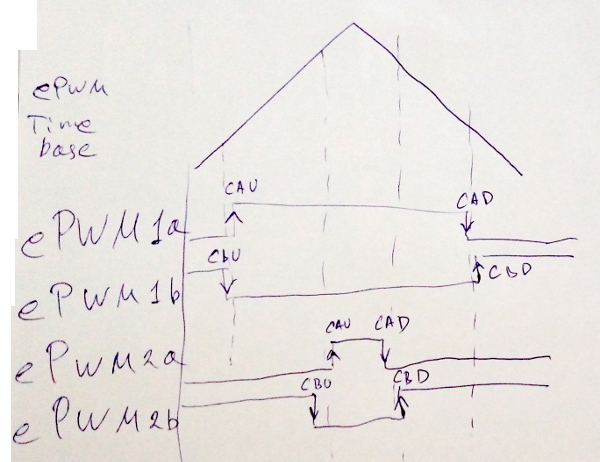 ePWM
Time
base
CAU
CAD
ePWM1a
CBU
CBD
ePWM1b
CAU CAD
ePWM2a
CBU CBD
ePWM2b